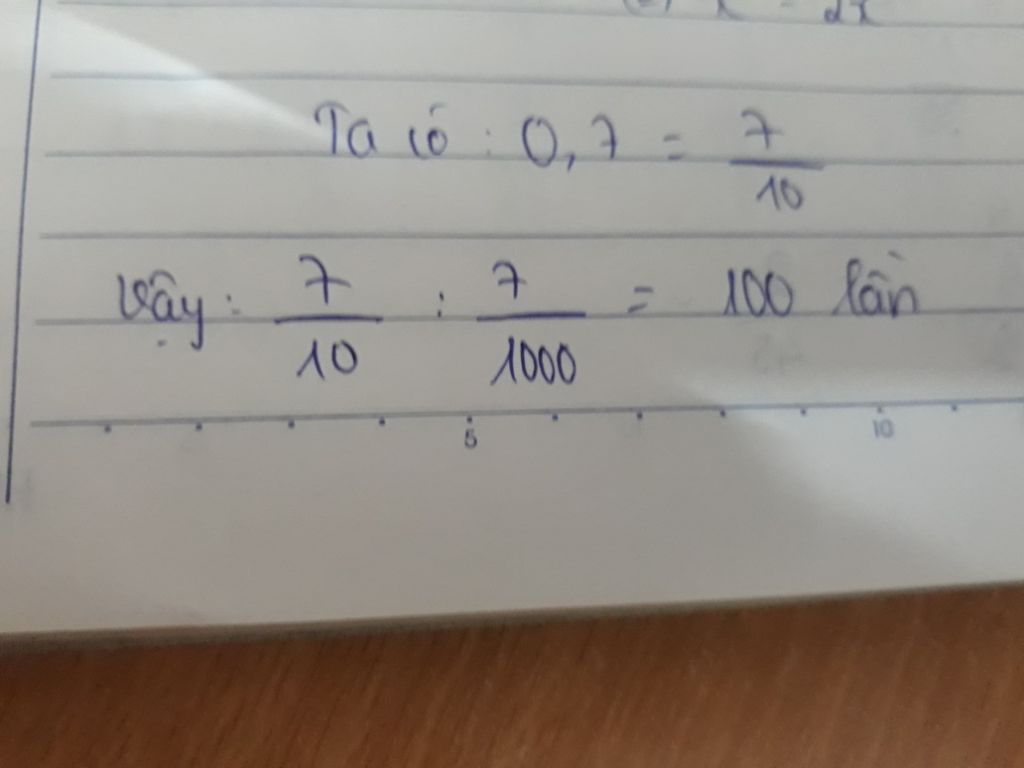 Ta có : 0,7 = 7/10
Vậy: 7/10 : 7/1000 = 100 lần
5 10